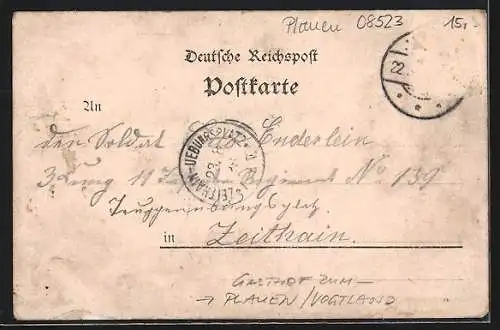 Plauen 08523 15,
Deutsche Reichspost
Postkarte
An
den Soldat Enderlein
ZEITHAIN-UEBUNGSPLATZ
22
3. 11 Regiment No 139
Truppenübungsplatz
in Zeithain.
GASTHOF ZUM
→ PLAUEN/VOGTLAND